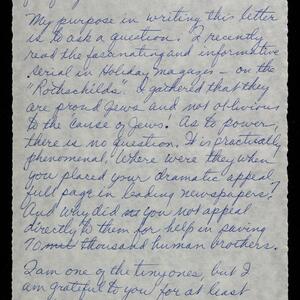 My purpose in writing this letter
is to ask a question. I recently
read the fascinating and informative
serial in Holiday magazes - on the
"Rothschilds". I gathered that they
are proud Jews and not oblivious
to the cause of Jews! As to power,
there is no question. It is practically
phenomenal. Where were they when
you placed your dramatic appeal
full page in leading newspapers?
And why did you not appeal
directly to them for help in saving
70 thousand human brothers.
I am one of the tiny ones, but I
am grateful to you for at least